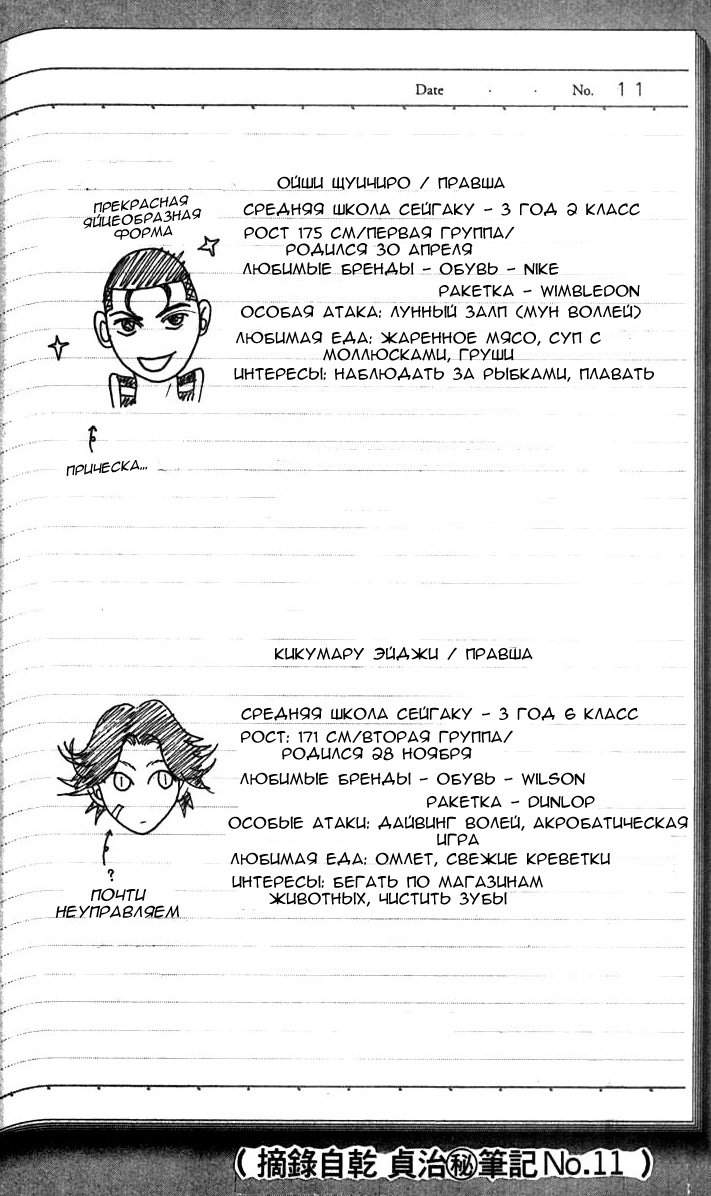 Date . . No. 11
ОЙШИ ЩУИЧИРО / ПРАВША
ПРЕКРАСНАЯ
ЯЙЦЕОБРАЗНАЯ
ФОРМА
СРЕДНЯЯ ШКОЛА СЕЙГАКУ - 3 ГОД 2 КЛАСС
РОСТ 175 СМ/ПЕРВАЯ ГРУППА/
РОДИЛСЯ 30 АПРЕЛЯ
ЛЮБИМЫЕ БРЕНДЫ - ОБУВЬ - NIKE
РАКЕТКА - WIMBLEDON
ОСОБАЯ АТАКА: ЛУННЫЙ ЗАЛП (МУН ВОЛЛЕЙ)
ЛЮБИМАЯ ЕДА: ЖАРЕННОЕ МЯСО, СУП С
МОЛЛЮСКАМИ, ГРУШИ
ИНТЕРЕСЫ: НАБЛЮДАТЬ ЗА РЫБКАМИ, ПЛАВАТЬ
ПРИЧЕСКА...
КИКУМАРУ ЭЙДЖИ / ПРАВША
СРЕДНЯЯ ШКОЛА СЕЙГАКУ - 3 ГОД 6 КЛАСС
РОСТ: 171 СМ/ВТОРАЯ ГРУППА/
РОДИЛСЯ 28 НОЯБРЯ
ЛЮБИМЫЕ БРЕНДЫ - ОБУВЬ - WILSON
РАКЕТКА - DUNLOP
ОСОБЫЕ АТАКИ: ДАЙВИНГ ВОЛЕЙ, АКРОБАТИЧЕСКАЯ
ИГРА
ЛЮБИМАЯ ЕДА: ОМЛЕТ, СВЕЖИЕ КРЕВЕТКИ
ИНТЕРЕСЫ: БЕГАТЬ ПО МАГАЗИНАМ
ЖИВОТНЫХ, ЧИСТИТЬ ЗУБЫ
?
ПОЧТИ
НЕУПРАВЛЯЕМ
( 摘錄自乾 貞治㊙筆記No.11 )